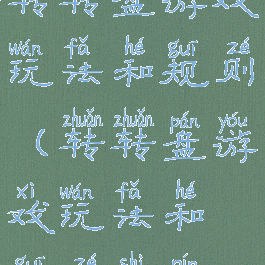 转转盘游戏
wán fǎ hé guī zé
玩法和规则
zhuǎn zhuǎn pán yóu
（转转盘游
xì wán fǎ hé
戏玩法和
guī zé shì pín